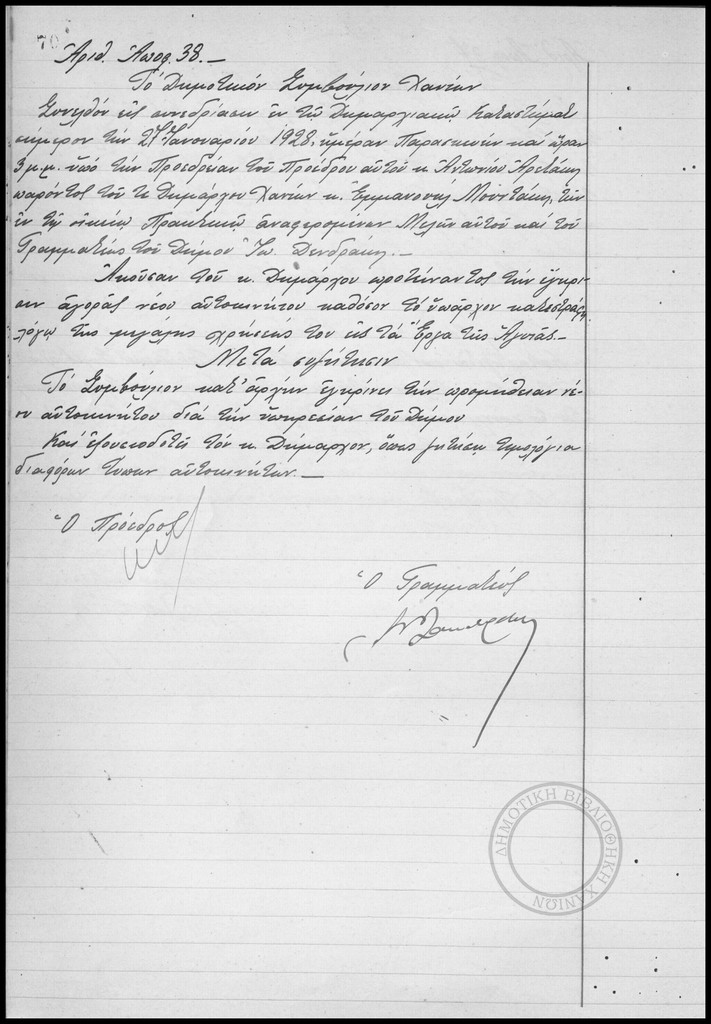 70
Ἀριθ. Ἀποφ. 38.—
Τό Δημοτικόν Συμβούλιον Χανίων
Συνελθόν εἰς συνεδρίασιν ἐν τῷ Δημαρχιακῷ Καταστήματι
σήμερον τήν 27ην Ἰανουαρίου 1928, ἡμέραν Παρασκευήν καί ὥραν
3 μ.μ. ὑπό τήν Προεδρείαν τοῦ Προέδρου αὐτοῦ κ. Ἀντωνίου
παρόντος τοῦ κ Δημάρχου Χανίων κ. Ἐμμανουήλ Μουντάκη, τῶν
ἐν τῷ οἰκείῳ Πρακτικῷ ἀναφερομένων Μελῶν αὐτοῦ καί τοῦ
Γραμματέως τοῦ Δήμου Ἰω. Δενδράκη.—
Ἀκοῦσαν τοῦ κ. Δημάρχου προτείναντος τήν ἔγκρι-
σιν ἀγορᾶς νέου αὐτοκινήτου καθόσον τό ὑπάρχον κατεστράφη
λόγῳ τῆς μεγάλης χρήσεώς του εἰς τά Ἔργα τῆς Ἀγυιᾶς.—
Μετά συζήτησιν
Τό Συμβούλιον κατ' ἀρχήν ἐγκρίνει τήν προμήθειαν νέ-
ου αὐτοκινήτου διά τήν ὑπηρεσίαν τοῦ Δήμου
Καί ἐξουσιοδοτεῖ τόν κ. Δήμαρχον, ὅπως ζητήσῃ τιμολόγια
διαφόρων τύπων αὐτοκινήτων.—
Ὁ Πρόεδρος
Ὁ Γραμματεύς
ΔΗΜΟΤΙΚΗ ΒΙΒΛΙΟΘΗΚΗ ΧΑΝΙΩΝ